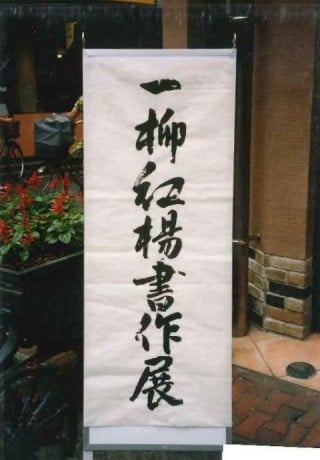 一柳紅楊書作展